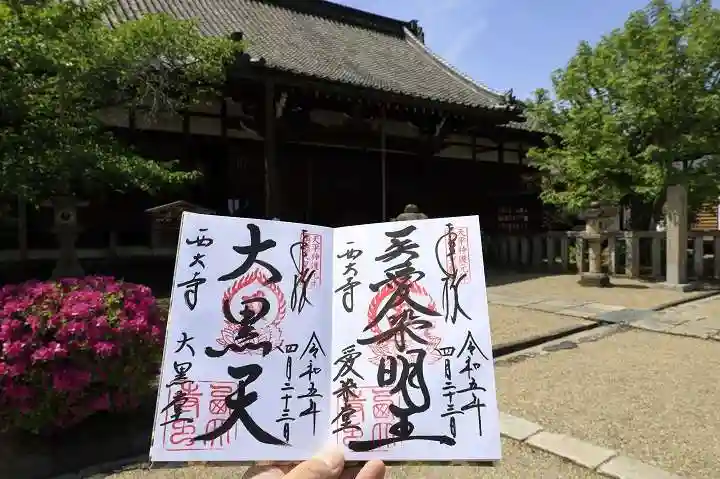 奉拝
令和五年
四月二十三日
愛染明王
西大寺
愛染堂
奉拝
令和五年
四月二十三日
大黒天
西大寺
大黒堂